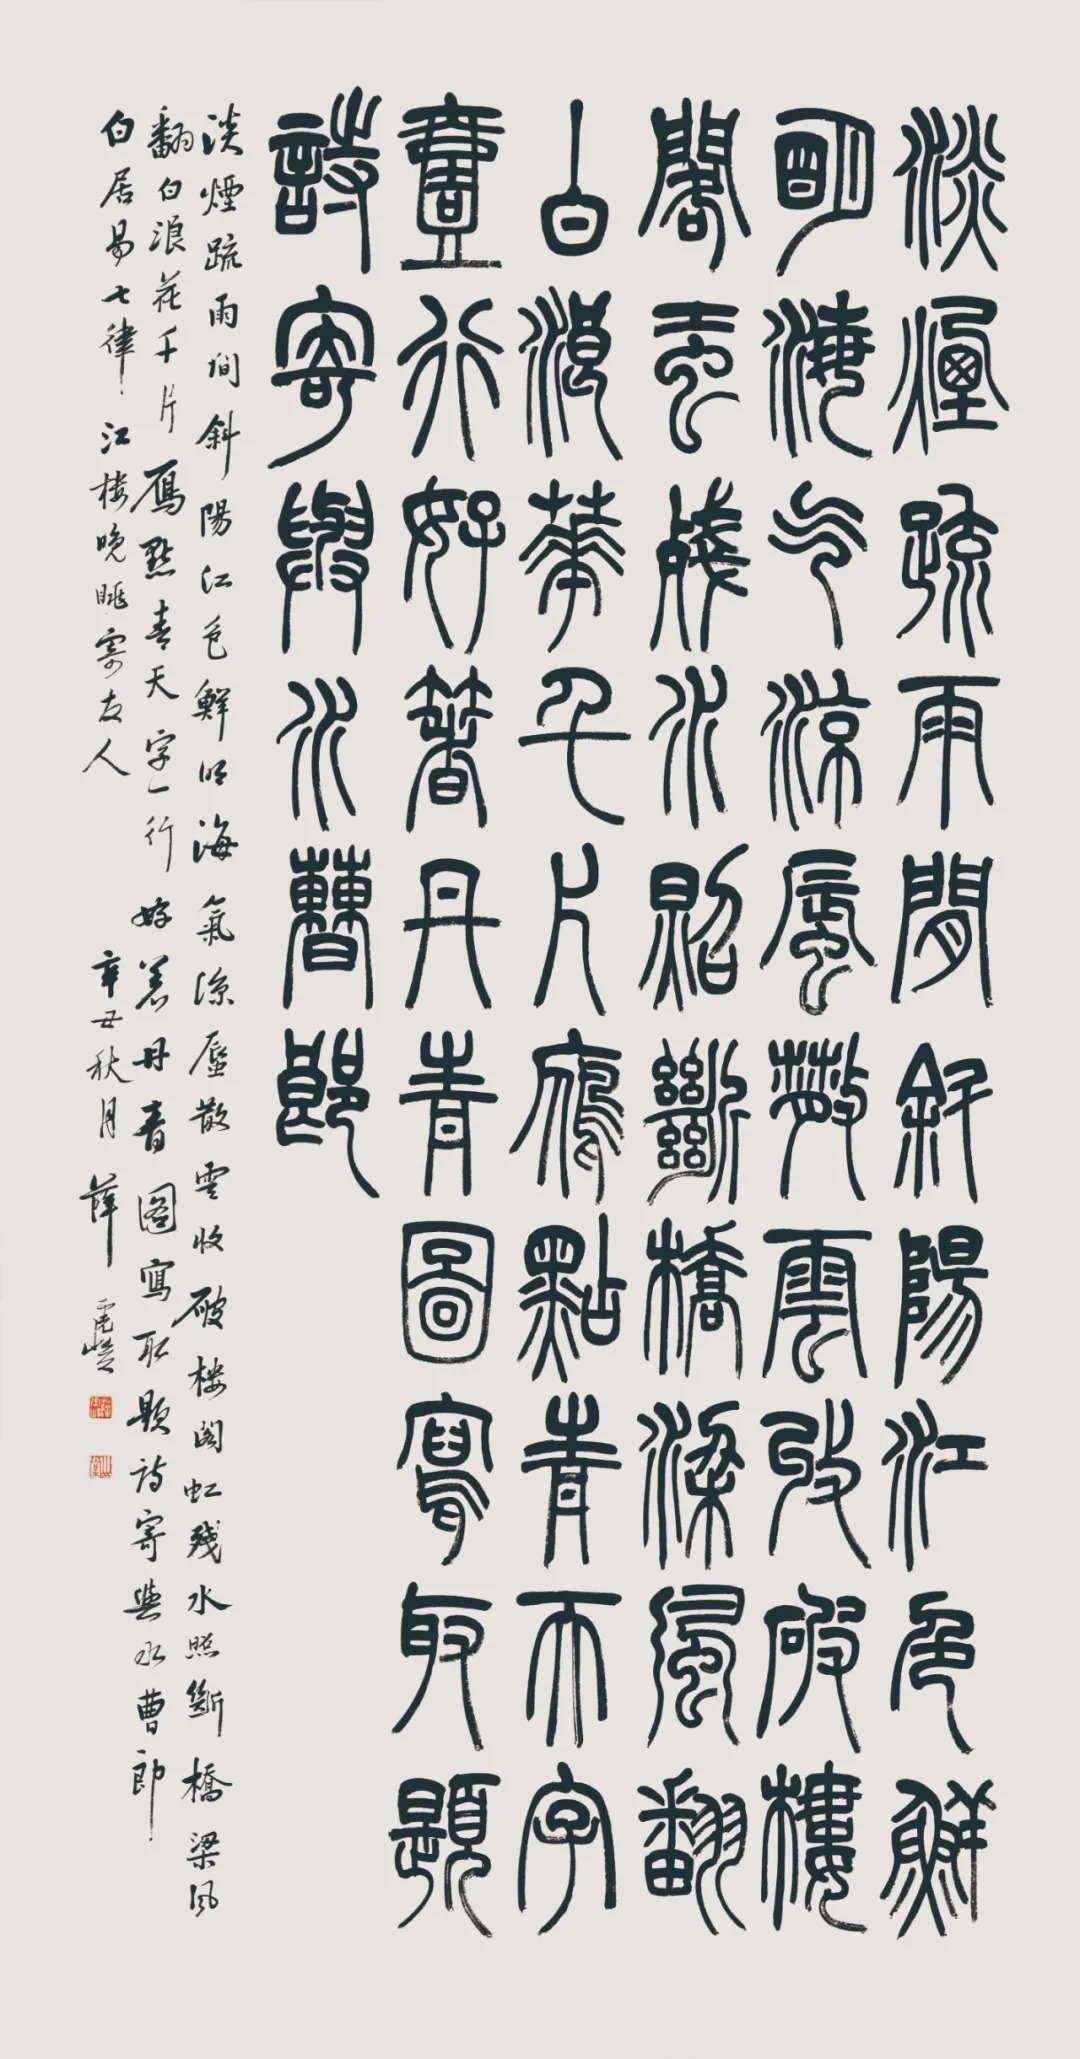 淡煙疏雨間斜陽江色鮮
明海气涼蜃散雲收破樓
閣虹殘水照斷橋梁風翻
白浪華千片雁點青天字
壹行好著丹青圖寫取題
詩寄與水曹郎
淡煙疏雨間斜陽江色鮮明海氣涼蜃散雲收破樓閣虹殘水照斷橋梁風
翻白浪花千片雁點青天字一行好著丹青圖寫取題詩寄與水曹郎
白居易七律江樓晚眺寄友人 辛丑秋月薛